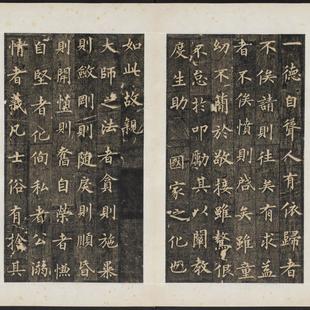 一德自聳人有依歸者
不俟請則往矣有求益
者不俟憤則啟矣雖童
幼不簡於敬接雖驁佷
不怠於叩勵其以闡教
度生助 國家之化也
如此故親
大師之法者貪則施暴
則斂剛則隨戾則順昏
則開憜則奮自榮者慊
自堅者化徇私者公溺
情者義凡士俗有捨其